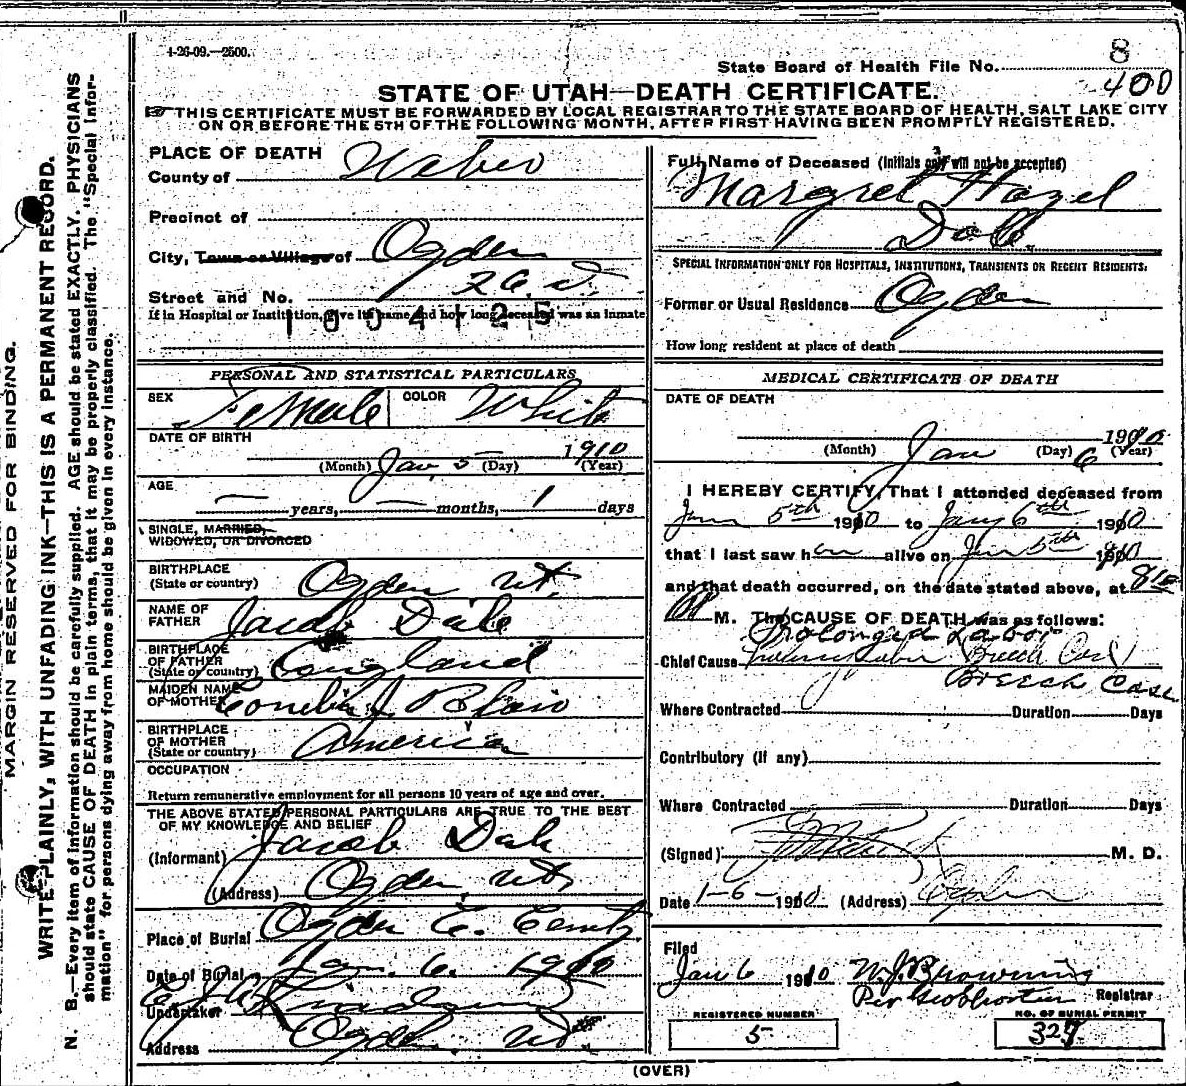 4-26-09.—2500.
8
State Board of Health File No.
400
STATE OF UTAH—DEATH CERTIFICATE.
THIS CERTIFICATE MUST BE FORWARDED BY LOCAL REGISTRAR TO THE STATE BOARD OF HEALTH, SALT LAKE CITY
ON OR BEFORE THE 5TH OF THE FOLLOWING MONTH, AFTER FIRST HAVING BEEN PROMPTLY REGISTERED.
MARGIN RESERVED FOR BINDING.
WRITE PLAINLY, WITH UNFADING INK—THIS IS A PERMANENT RECORD.
N. B.—Every item of information should be carefully supplied. AGE should be stated EXACTLY. PHYSICIANS
should state CAUSE OF DEATH in plain terms, that it may be properly classified. The "Special Infor-
mation" for persons dying away from home should be given in every instance.
PLACE OF DEATH
County of Weber
Precinct of
City, Town or Village of Ogden
Street and No. 26
If in Hospital or Institution, give its name and how long deceased was an inmate
1004125
PERSONAL AND STATISTICAL PARTICULARS
SEX Female COLOR White
DATE OF BIRTH
(Month) Jan 5 (Day) 1910 (Year)
AGE
— years, — months, 1 days
SINGLE, MARRIED,
WIDOWED, OR DIVORCED
BIRTHPLACE
(State or country) Ogden Ut.
NAME OF
FATHER Jacob Dale
BIRTHPLACE
OF FATHER
(State or country) England
MAIDEN NAME
OF MOTHER J. Blair
BIRTHPLACE
OF MOTHER
(State or country) America
OCCUPATION
Return remunerative employment for all persons 10 years of age and over.
THE ABOVE STATED PERSONAL PARTICULARS ARE TRUE TO THE BEST
OF MY KNOWLEDGE AND BELIEF
(Informant) Jacob Dale
(Address) Ogden, Ut.
Place of Burial Ogden C.
Date of Burial Jan. 6. 1910
Undertaker
Address Ogden Ut
Full Name of Deceased (Initials only will not be accepted)
Margret Hazel
Dale
SPECIAL INFORMATION ONLY FOR HOSPITALS, INSTITUTIONS, TRANSIENTS OR RECENT RESIDENTS:
Former or Usual Residence Ogden
How long resident at place of death
MEDICAL CERTIFICATE OF DEATH
DATE OF DEATH
(Month) Jan (Day) 6 1910 (Year)
I HEREBY CERTIFY, That I attended deceased from
Jan 5th 1910 to Jany 6th 1910
that I last saw her alive on Jan 5th 1910
and that death occurred, on the date stated above, at 810
M. The CAUSE OF DEATH was as follows:
Prolonged Labor
Chief Cause (Breech Case)
Breech Case
Where Contracted Duration Days
Contributory (If any)
Where Contracted Duration Days
(Signed) M. D.
Date 1-6-1910 (Address) Ogden
Filed
Jan 6 1910 W. J. Browning
Per Registrar
REGISTERED NUMBER
5
NO. OF BURIAL PERMIT
327
(OVER)